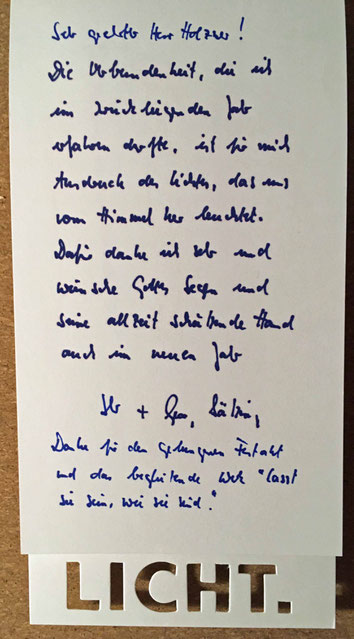 Sehr geehrter Herr Holzner!
Die Verbundenheit, die ich
im zurückliegenden Jahr
erfahren durfte, ist für mich
Ausdruck des Lichtes, das uns
vom Himmel her leuchtet.
Dafür danke ich sehr und
wünsche Gottes Segen und
seine allzeit schützende Hand
auch im neuen Jahr
Ihr +
Danke für den gelungenen Festakt
und das begleitende Werk "lasst
sie sein, wie sie sind."
LICHT.